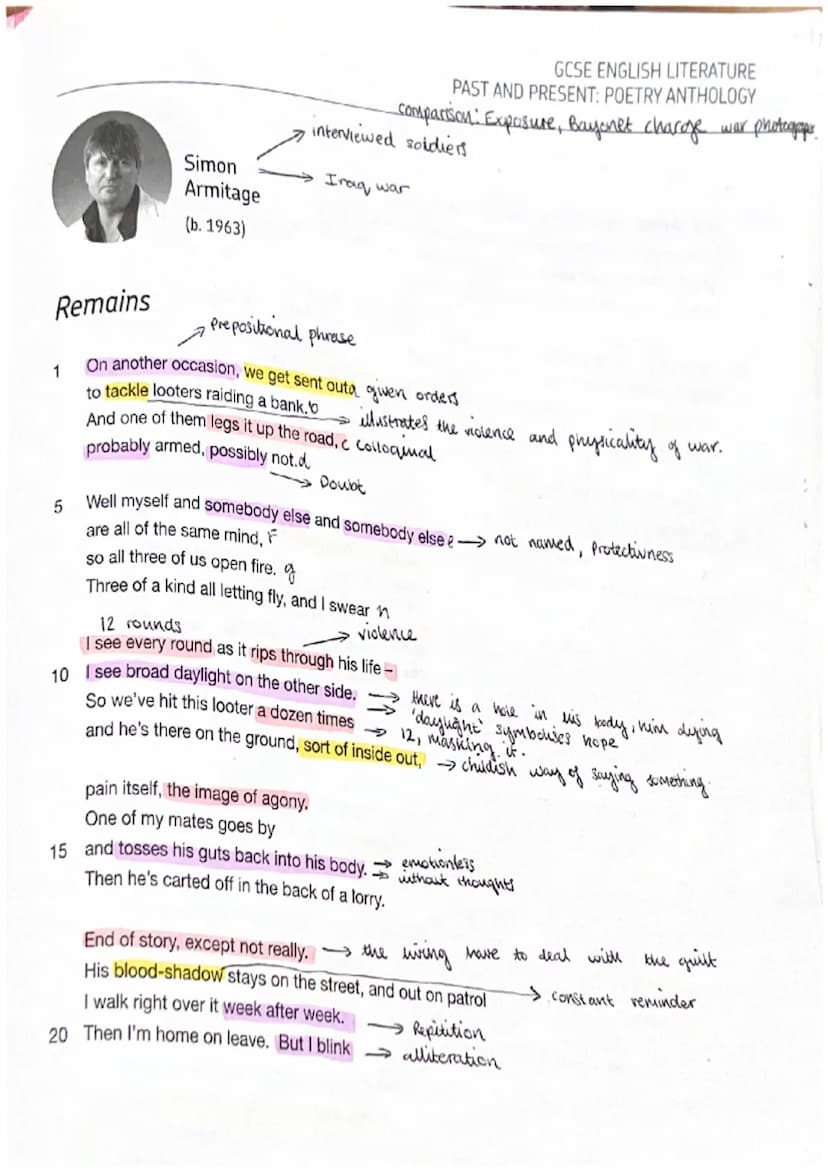 GCSE ENGLISH LITERATURE
PAST AND PRESENT: POETRY ANTHOLOGY
comparison: Exposure, Bayonet charge war photograpr
interviewed soldiers
Simon
Armitage
Iraq war
(b. 1963)
Remains
Prepositional phrase
1 On another occasion, we get sent out a given orders
to tackle looters raiding a bank. b
illustrates the violence and physicality of war.
And one of them legs it up the road, c colloquial
probably armed, possibly not. d
Doubt
5 Well myself and somebody else and somebody else e not named, Protectivness
are all of the same mind, F
so all three of us open fire. g
Three of a kind all letting fly, and I swear h
12 rounds
violence
I see every round as it rips through his life –
10 I see broad daylight on the other side. there is a hole in his body, him dying
'daylight' symbolises hope
So we've hit this looter a dozen times 12, masking it.
and he's there on the ground, sort of inside out, childish way of saying something.
pain itself, the image of agony.
One of my mates goes by
15 and tosses his guts back into his body. emotionless
without thoughts
Then he's carted off in the back of a lorry.
End of story, except not really. the living have to deal with the guilt
His blood-shadow stays on the street, and out on patrol constant reminder
I walk right over it week after week. Repitition
20 Then I'm home on leave. But I blink alliteration